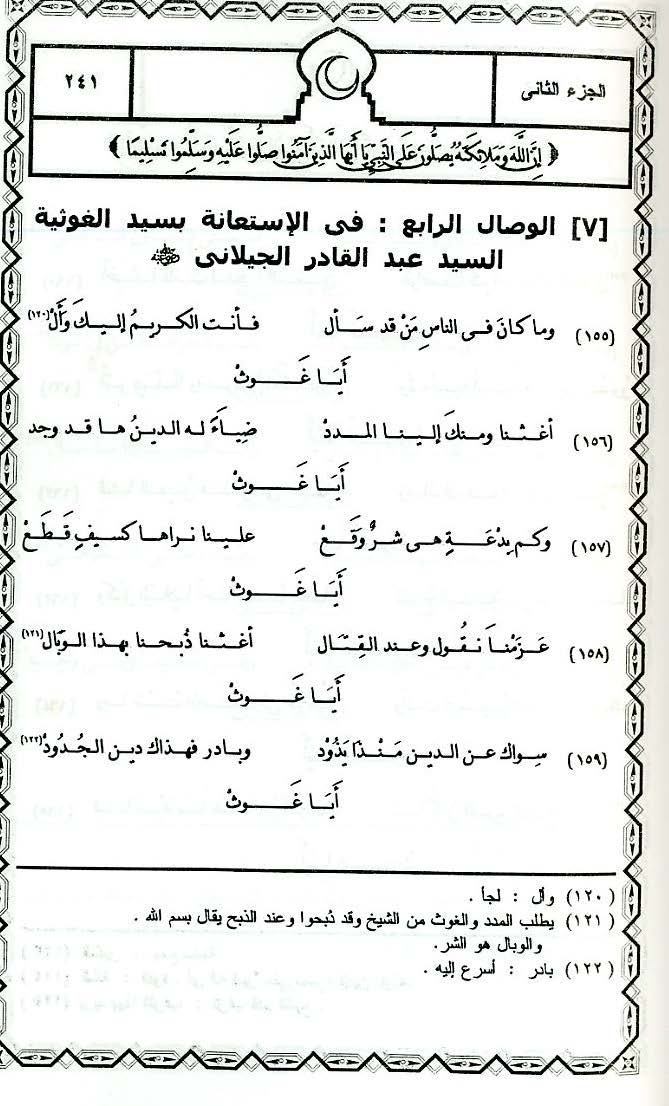 الجزء الثانى
٢٤١
﴿ إِنَّ اللَّهَ وَمَلَائِكَتَهُ يُصَلُّونَ عَلَى النَّبِيِّ يَا أَيُّهَا الَّذِينَ آمَنُوا صَلُّوا عَلَيْهِ وَسَلِّمُوا تَسْلِيمًا ﴾
[٧] الوصال الرابع : فى الإستعانة بسيد الغوثية
السيد عبد القادر الجيلانى ﷺ
(١٥٥) وما كانَ فى الناسِ مَنْ قد سَأل فأنت الكريمُ إليكَ وَأَلْ(١٢٠)
أَيَا غَوثْ
(١٥٦) أغثنا ومنكَ إلينا المددْ ضِيَاءً له الدينُ ها قد وجد
أَيَا غَوثْ
(١٥٧) وكم بِدْعَةٍ هى شرٌّ وَقَعْ علينا نراها كسيفٍ قَطَعْ
أَيَا غَوثْ
(١٥٨) عَزَمْنَا نقُول وعند القِتَال أغثنا ذُبحنا بهذا الوَبَال(١٢١)
أَيَا غَوثْ
(١٥٩) سِواك عن الدين مَنْذَا يَذُوْد وبادر فهذاك دين الجُدُودْ(١٢٢)
أَيَا غَوثْ
(١٢٠) وأل : لجأ .
(١٢١) يطلب المدد والغوث من الشيخ وقد ذبحوا وعند الذبح يقال بسم الله .
والوبال هو الشر.
(١٢٢) بادر : أسرع إليه .